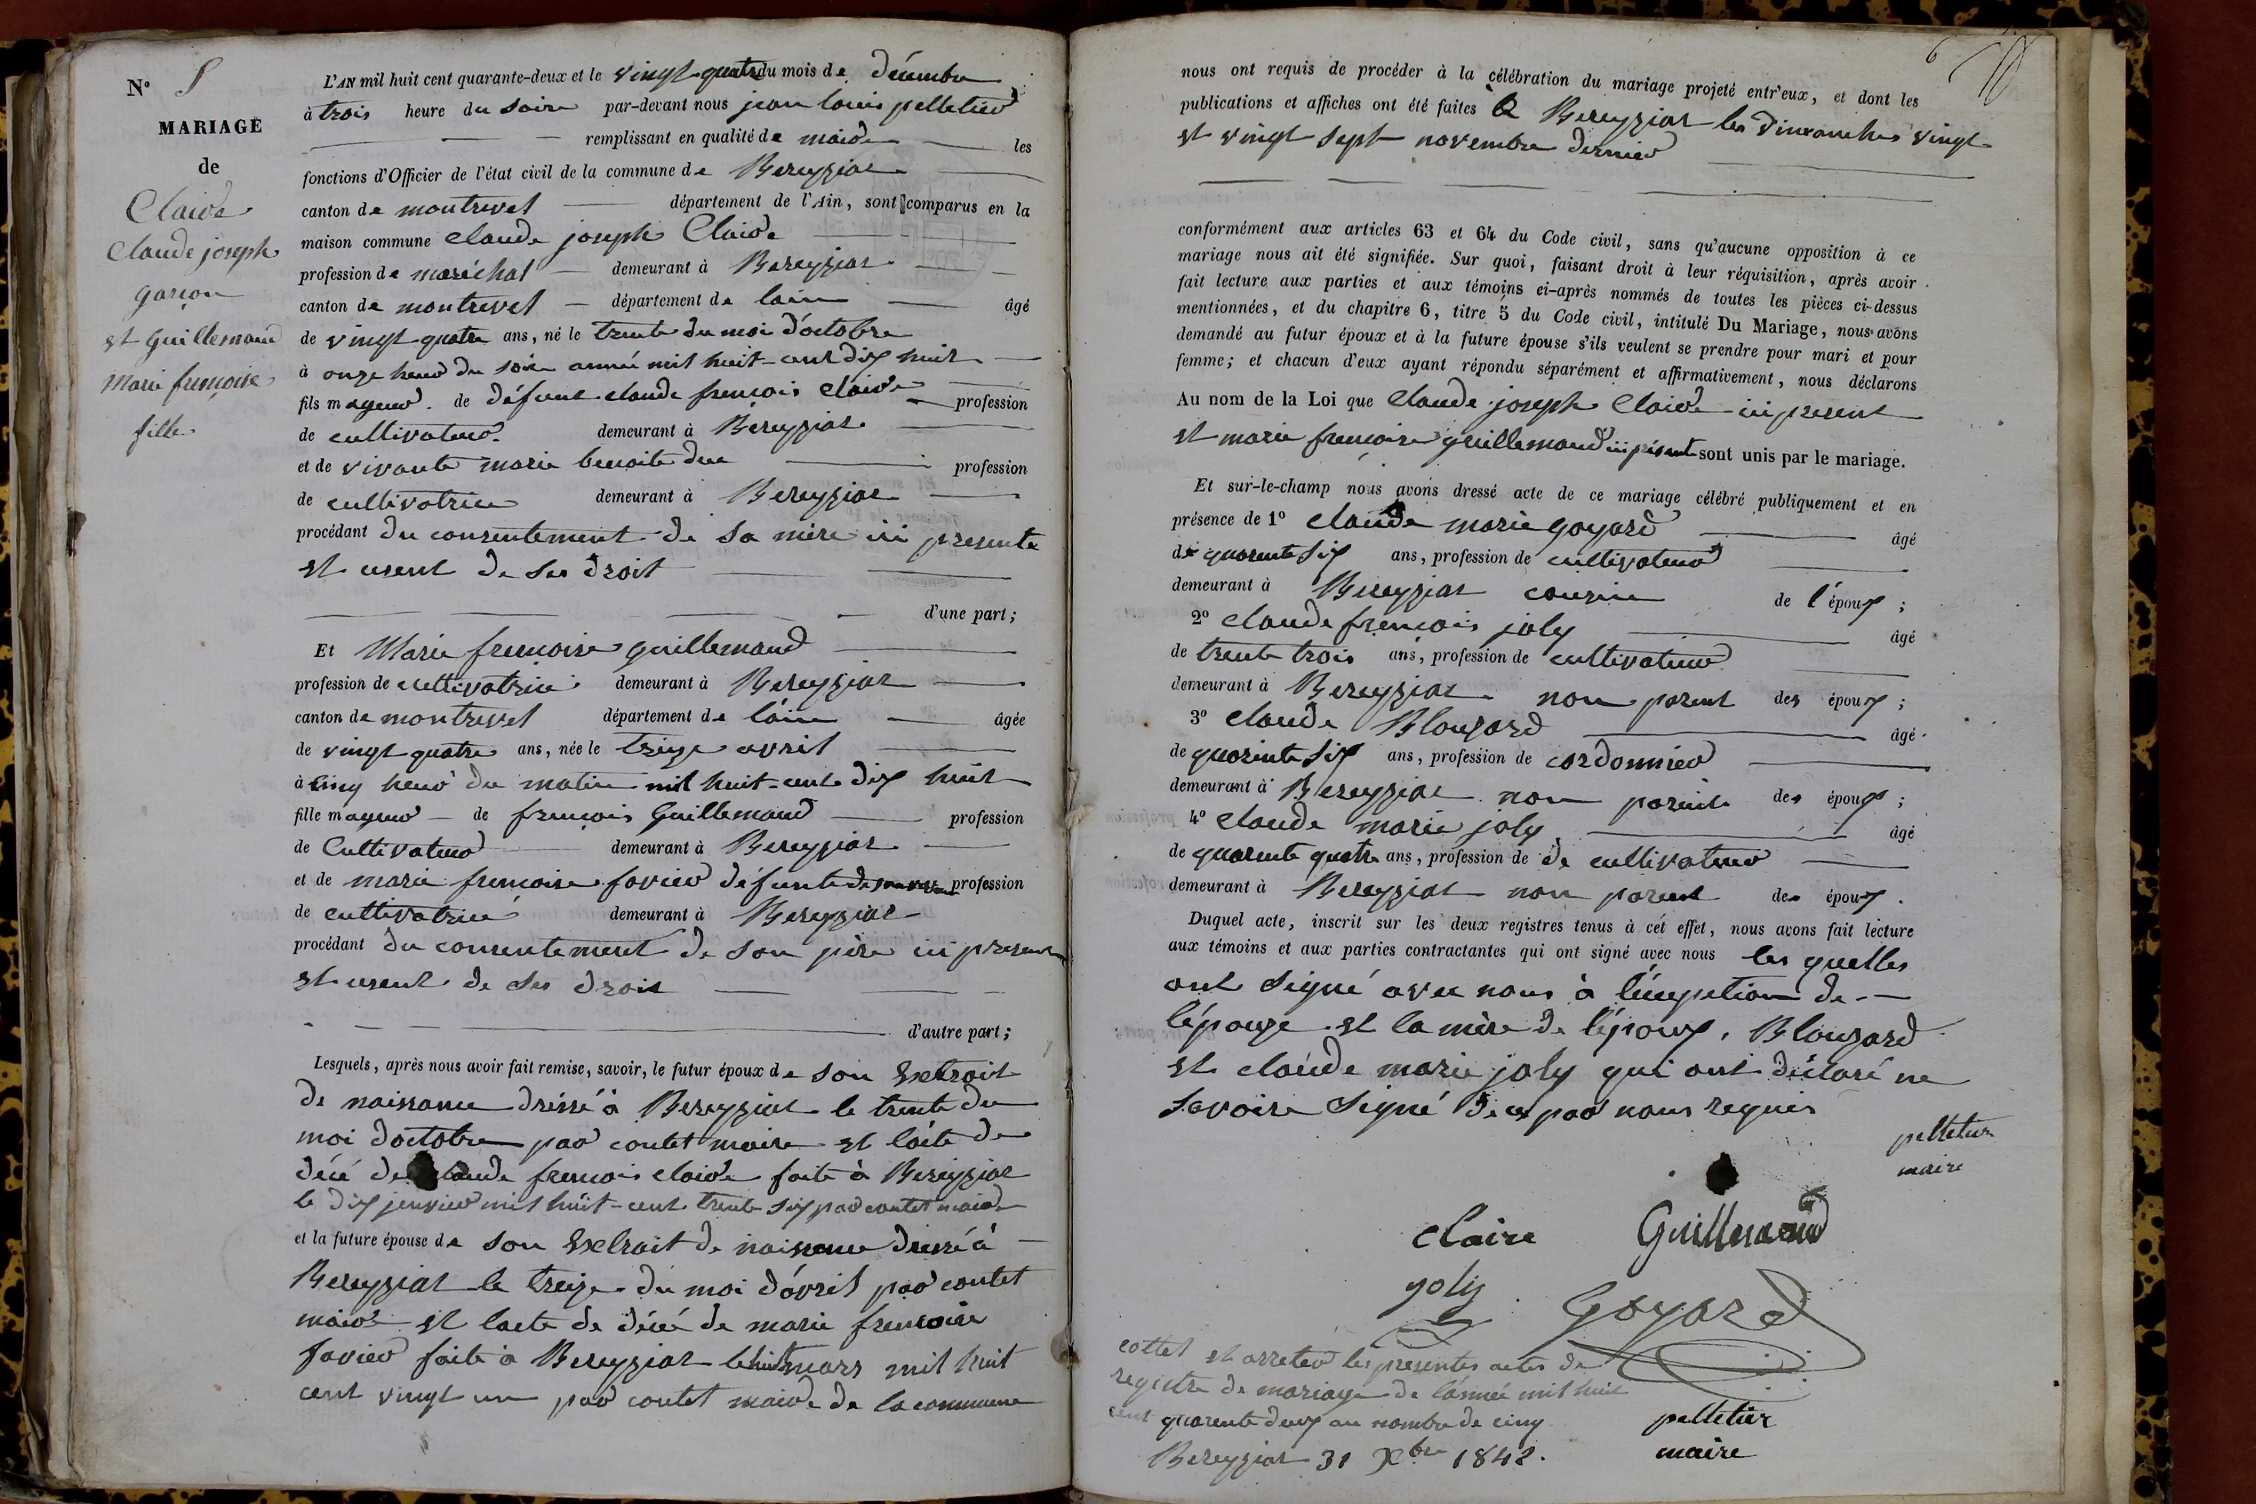 N° 5
MARIAGE
de
Claire
Claude joseph
garçon
et Guillemaud
Marie françoise
fille
L'AN mil huit cent quarante-deux et le vingt quatre du mois de décembre
à trois heure du soire par-devant nous jean louis pelletier
remplissant en qualité de maire les
fonctions d'Officier de l'état civil de la commune de Bereyziat
canton de montrevel département de l'Ain, sont comparus en la
maison commune Claude joseph Claire
profession de maréchal demeurant à Bereyziat
canton de montrevel département de lain âgé
de vingt quatre ans, né le trente du moi d'octobre
à onze heur du soire année mil huit-cent dix huit
fils mageur de défunt claude françois claire profession
de cultivateur demeurant à Bereyziat
et de vivante marie benoite profession
de cultivatrice demeurant à Bereyziat
procédant du consentement de sa mère ici presente
et usent de ses droit
d'une part;
Et Marie françoise guillemaud
profession de cultivatrice demeurant à Bereyziat
canton de montrevel département de l'ain âgée
de vingt quatre ans, née le treize avril
à cinq heur du matin mil huit-cent dix huit
fille mageur de françois Guillemaud profession
de Cultivateur demeurant à Bereyziat
et de marie françoise favier défunte profession
de cultivatrice demeurant à Bereyziat
procédant du consentement de son père ici present
et usent de ses droit
d'autre part;
Lesquels, après nous avoir fait remise, savoir, le futur époux de son Extrait
de naissance dréssé à Bereyziat le trente du
moi doctobre par contet maire et l'acte de
décé de claude françois claire faite à Bereyziat
le dix jenvier mil huit-cent trente six par contet maire
et la future épouse de son Extrait de naissance dressé à
Bereyziat le treize du moi d'avril par contet
maire et lacte de décé de marie françoise
favier faite à Bereyziat le huit mars mil huit
cent vingt un par contet maire de la commune
6
nous ont requis de procéder à la célébration du mariage projeté entr'eux, et dont les
publications et affiches ont été faites à Bereyziat les dimanches vingt
et vingt sept novembre dernier
conformément aux articles 63 et 64 du Code civil, sans qu'aucune opposition à ce
mariage nous ait été signifiée. Sur quoi, faisant droit à leur réquisition, après avoir
fait lecture aux parties et aux témoins ci-après nommés de toutes les pièces ci-dessus
mentionnées, et du chapitre 6, titre 5 du Code civil, intitulé Du Mariage, nous avons
demandé au futur époux et à la future épouse s'ils veulent se prendre pour mari et pour
femme; et chacun d'eux ayant répondu séparément et affirmativement, nous déclarons
Au nom de la Loi que Claude joseph Claire ici present
et marie françoise guillemaud ici présent sont unis par le mariage.
Et sur-le-champ nous avons dressé acte de ce mariage célébré publiquement et en
présence de 1° claude marie goyard âgé
de quarente six ans, profession de cultivateur
demeurant à Bereyziat cousin de l'époux;
2° claude françois joly âgé
de trente trois ans, profession de cultivateur
demeurant à Bereyziat non parent des époux;
3° claude Blouzard âgé
de quarente six ans, profession de cordonnier
demeurant à Bereyziat non parent des époux;
4° claude marie joly âgé
de quarente quatre ans, profession de de cultivateur
demeurant à Bereyziat non parent des époux.
Duquel acte, inscrit sur les deux registres tenus à cet effet, nous avons fait lecture
aux témoins et aux parties contractantes qui ont signé avec nous les quelles
ont signé avec nous à l'éxeption de
l'épouze et la mère de l'époux, Blouzard
et claude marie joly qui ont déclaré ne
savoire signé de ce par nous requis
pelletier
maire
Claire Guillemaud
joly Goyard
cottet et arreter les presentes actes de
registre de mariage de l'année mil huit
cent quarente deux au nombre de cinq
Bereyziat 31 Xbre 1842.
pelletier
maire